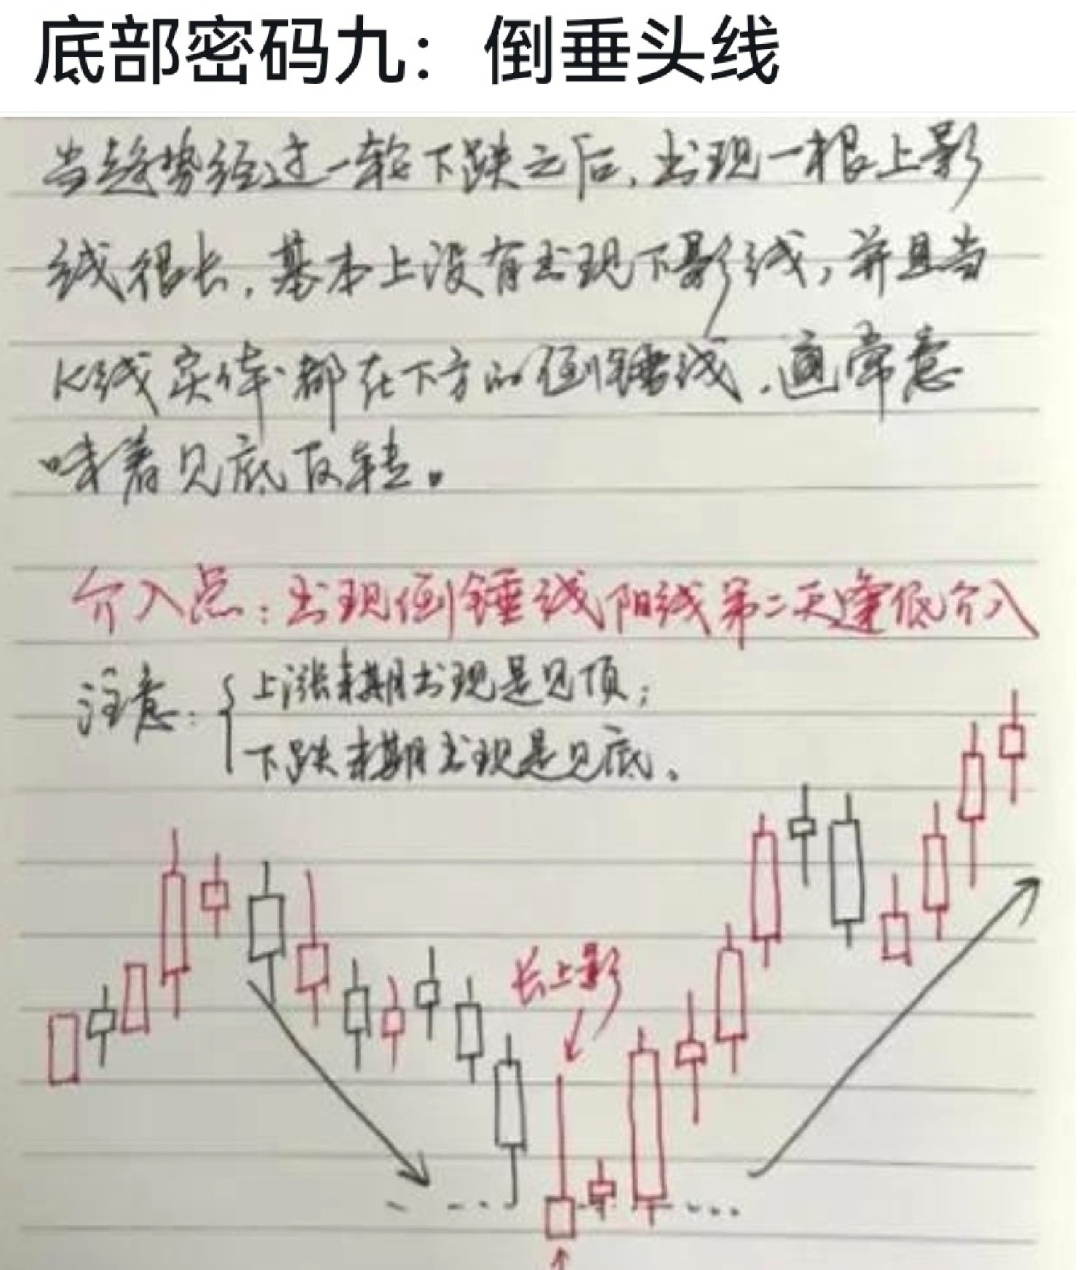 底部密码九：倒垂头线
当趋势经过一轮下跌之后，出现一根上影
线很长，基本上没有出现下影线，并且当
K线实体都在下方的倒锤线，通常意
味着见底反转。
介入点：出现倒锤线阳线第二天逢低介入
注意：{上涨末期出现是见顶；
下跌末期出现是见底。
长上影